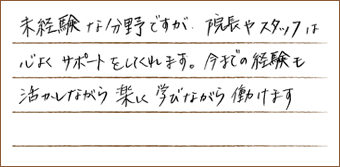 未経験な分野ですが、院長やスタッフは
心よくサポートをしてくれます。今までの経験も
活かしながら楽しく学びながら働けます